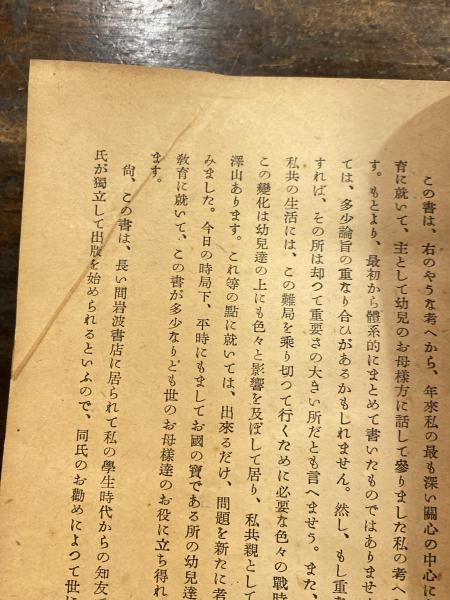 この書は、右のやうな考へから、年來私の最も深い關心の中心に
育に就いて、主として幼兒のお母樣方に話して參りました私の考へ
す。もとより、最初から體系的にまとめて書いたものではありませ
ては、多少論旨の重なり合ひがあるかもしれません。然し、もし重
すれば、その所は却つて重要さの大きい所だとも言へませう。また、
私共の生活には、この難局を乘り切つて行くために必要な色々の戰時
この變化は幼兒達の上にも色々と影響を及ぼして居り、私共親として
澤山あります。これ等の點に就いては、出來るだけ、問題を新たに考
みました。今日の時局下、平時にもましてお國の寶である所の幼兒達
敎育に就いて、この書が多少なりとも世のお母樣達のお役に立ち得れ
ます。
尙、この書は、長い間岩波書店に居られて私の學生時代からの知友
氏が獨立して出版を始められるといふので、同氏のお勸めによつて世に